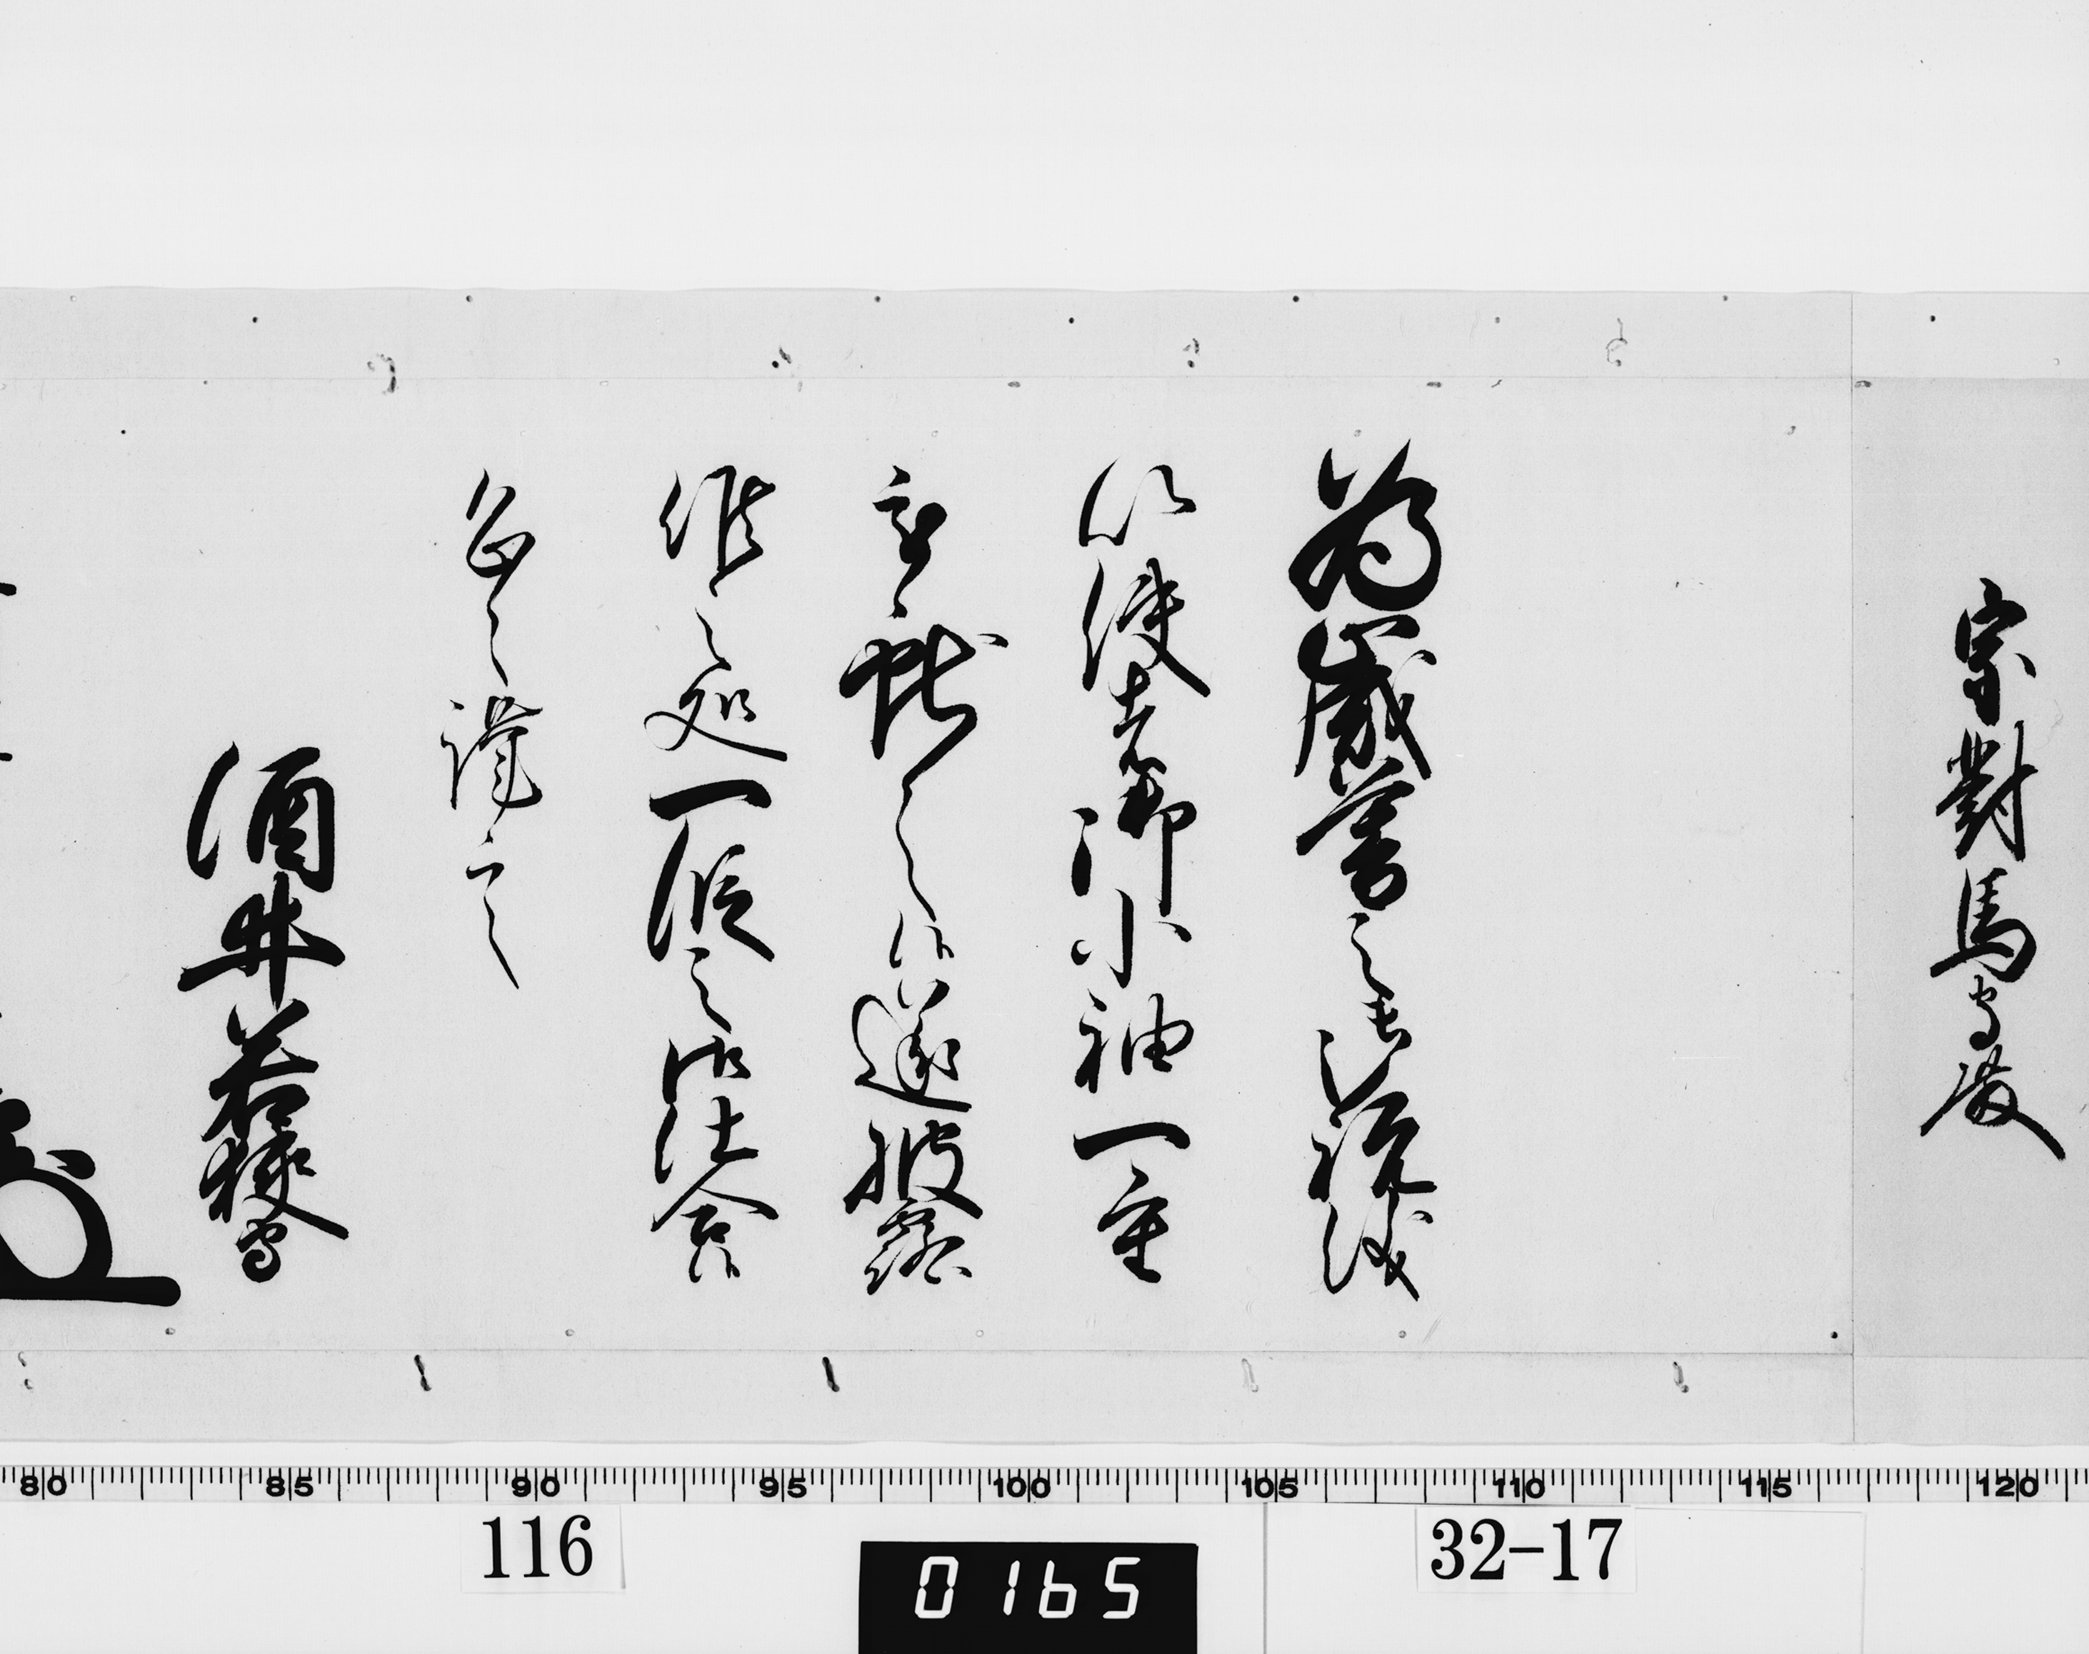 宗對馬守殿
為歳暮之御祝儀
以使者御小袖一重
被献之候遂披露
候之処一段之御仕合候
恐々謹言
酒井若狭守
80 85 90 95 100 105 110 115 120
116
0165
32-17